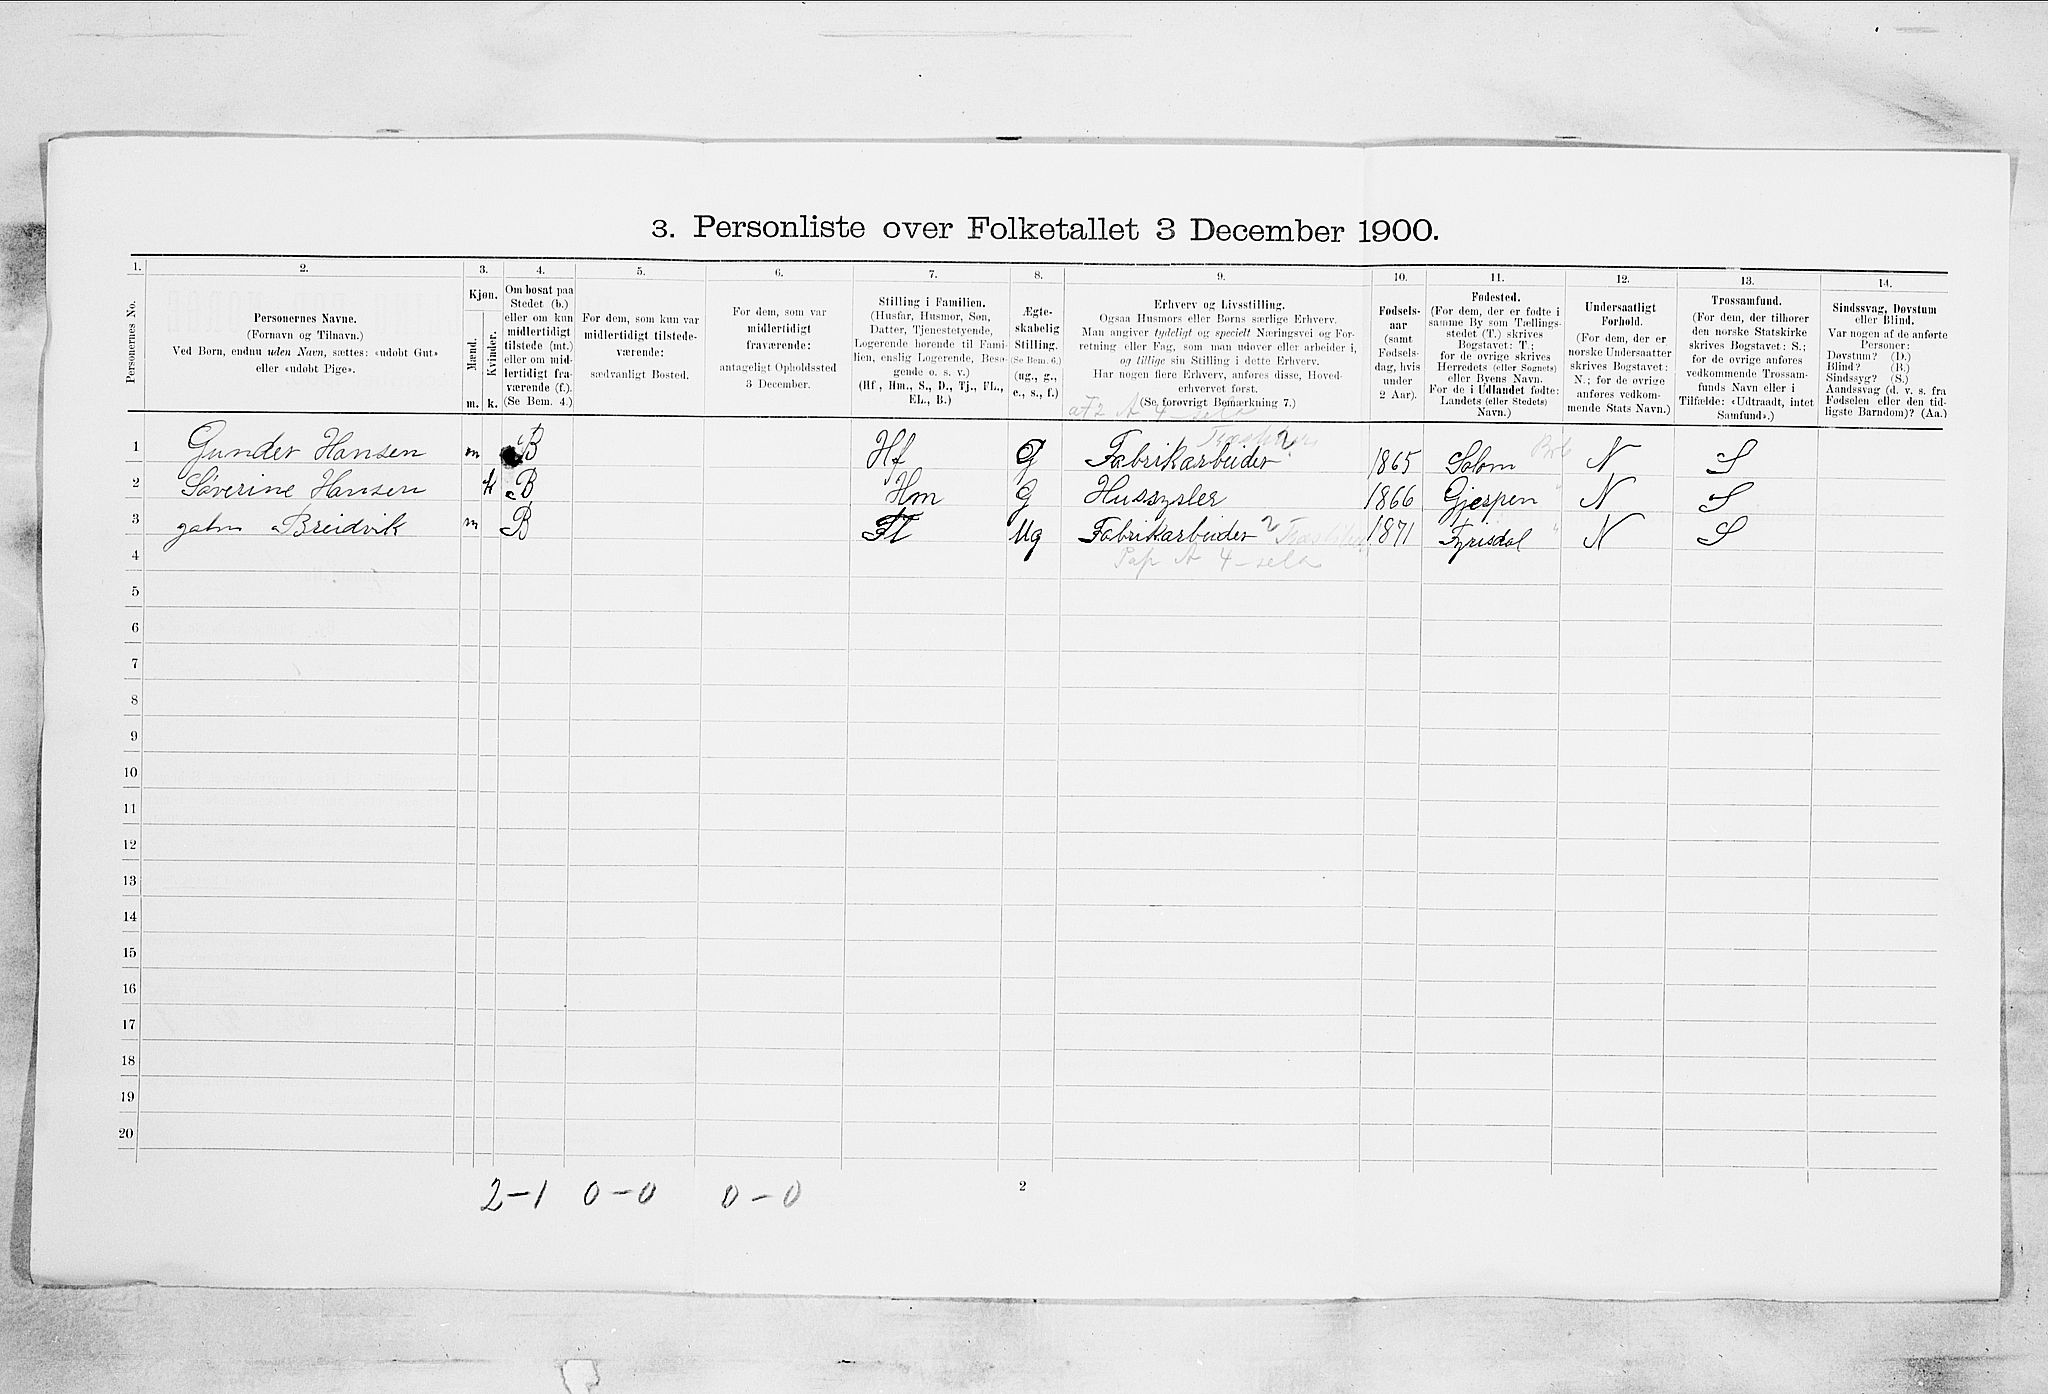 3. Personliste over Folketallet 3 December 1900.
1. 2. 3. 4. 5. 6. 7. 8. 9. 10. 11. 12. 13. 14.
Personernes No.
Personernes Navne.
(Fornavn og Tilnavn.)
Ved Børn, endnu uden Navn, sættes: «udøbt Gut»
eller «udøbt Pige».
Kjøn.
Mænd.
Kvinder.
m. k.
Om bosat paa
Stedet (b.)
eller om kun
midlertidigt
tilstede (mt.)
eller om mid-
lertidigt fra-
værende (f.).
(Se Bem. 4.)
For dem, som kun var
midlertidigt tilstede-
værende:
sædvanligt Bosted.
For dem, som var
midlertidigt
fraværende:
antageligt Opholdssted
3 December.
Stilling i Familien.
(Husfar, Husmor, Søn,
Datter, Tjenestetyende,
Logerende hørende til Fami-
lien, enslig Logerende, Besø-
gende o. s. v.)
(Hf., Hm., S., D., Tj., FL.,
EL., B.)
Ægte-
skabelig
Stilling.
(Se Bem. 6.)
(ug., g.,
e., s., f.)
Erhverv og Livsstilling.
Ogsaa Husmors eller Børns særlige Erhverv.
Man angiver tydeligt og specielt Næringsvei og For-
retning eller Fag, som man udøver eller arbeider i,
og tillige sin Stilling i dette Erhverv.
Har nogen flere Erhverv, anføres disse, Hoved-
erhvervet først.
(Se forøvrigt Bemærkning 7.)
Fødsels-
aar
(samt
Fødsels-
dag, hvis
under
2 Aar).
Fødested.
(For dem, der er fødte i
samme By som Tællings-
stedet (T.) skrives
Bogstavet: T.;
for de øvrige skrives
Herredets (eller Sognets)
eller Byens Navn.
For de i Udlandet fødte:
Landets (eller Stedets)
Navn.)
Undersaatligt
Forhold.
(For dem, der er
norske Undersaatter
skrives Bogstavet:
N.; for de øvrige
anføres vedkom-
mende Stats Navn.)
Trossamfund.
(For dem, der tilhører
den norske Statskirke
skrives Bogstavet: S.;
for de øvrige anføres
vedkommende Trossam-
funds Navn eller i
Tilfælde: «Udtraadt, intet
Samfund».)
Sindssvag, Døvstum
eller Blind.
Var nogen af de anførte
Personer:
Døvstum? (D.)
Blind? (B.)
Sindssyg? (S.)
Aandssvag (d. v. s. fra
Fødselen eller den tid-
ligste Barndom)? (Aa.)
A 4-sela
1 Gunder Hansen m B Hf G Fabrikarbeider 1865 Solom N S
2 Søverine Hansen k B Hm G Hussysler 1866 Gjerpen N S
3 B Breidvik m B Fl Ug Fabrikarbeider 1871 Fyrisdal N S
4 Pap A 4-sela
5
6
7
8
9
10
11
12
13
14
15
16
17
18
19
20
2-1 0-0 0-0 2